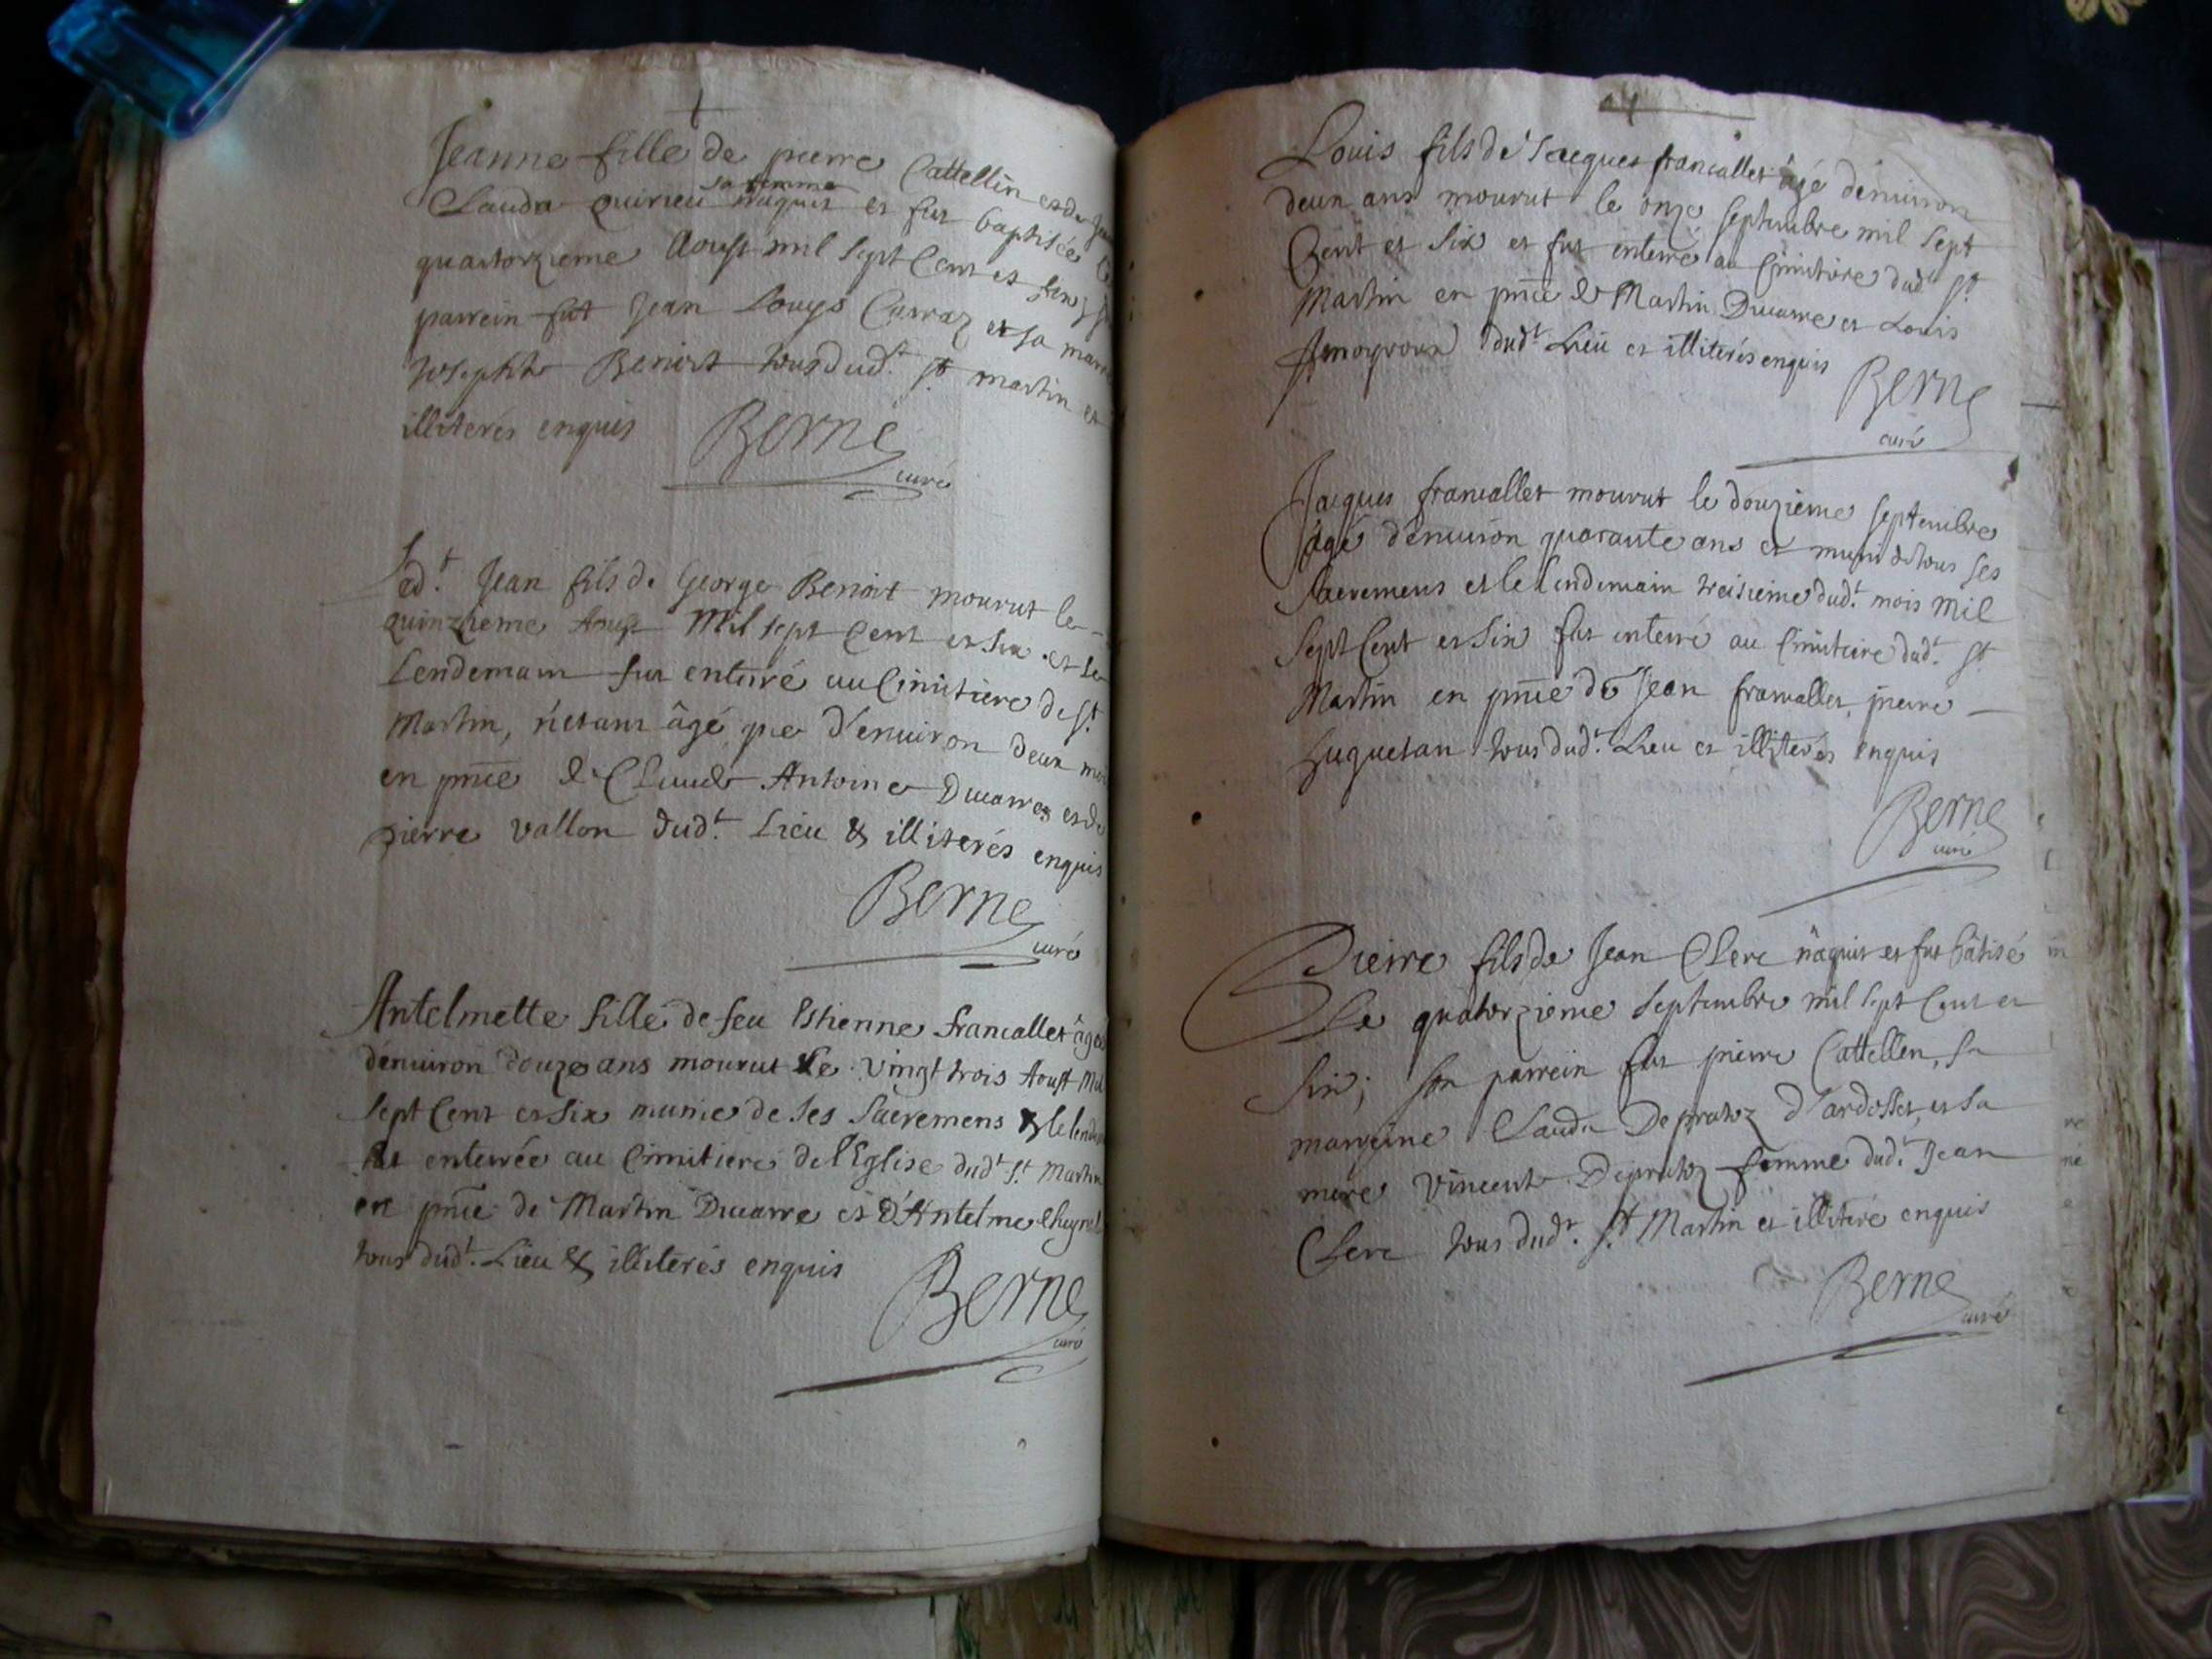 Jeanne fille de pierre Cattellin et de
Clauda quirieu sa femme naquit et fut baptisée le
quatorzieme Aoust mil sept Cent et six
parrein fut Jean Louys Carraz et sa marre
Josephte Benoit tous dud.t st martin et
illiterés enquis Berne
curé
Led.t Jean fils de George Benoit mourut le
quinzieme Aoust Mil sept Cent et six et le
Lendemain fut enterré au Cimitiere de st
Martin, n'etant âgé que d'enuiron deux mois
en pnce de Claude Antoine Ducarre et de
pierre vallon dud.t Lieu & illiterés enquis
Berne
curé
Antelmette fille de feu Estienne francallet âgée
denuiron douze ans mourut le vingt trois Aoust Mil
sept Cent et six munie de ses Sacremens & le
fut enterrée au Cimitiere de l'Eglise dud.t st Martin
en pnce de Martin Ducarre et d'Antelme
tous dud.t Lieu & illiterés enquis
Berne
curé
Louis fils de Jacques francallet âgé denuiron
deux ans mourut le onze septembre mil sept
Cent et six et fut enterré au Cimitiere dud.t st
Martin en pnce de Martin Ducarre et Louis
dud.t Lieu et illiterés enquis
Berne
curé
Jacques francallet mourut le douzieme septembre
âgé d'enuiron quarante ans et muni de tous ses
Sacremens et le Lendemain treisieme dud.t mois mil
sept Cent et six fut enterré au Cimitiere dud.t st
Martin en pnce de Jean francallet, pierre
huguetan tous dud.t Lieu et illiterés enquis
Berne
curé
Pierre fils de Jean Clerc nâquit et fut bâtisé
Le quatorzieme septembre mil sept Cent et
six; son parrein fut pierre Cattellen, sa
marreine Clauda Depratz d'ardosset, et sa
mere Vincente Depratz femme dud.t Jean
Clerc tous dud.t st Martin et illiteré enquis
Berne
curé